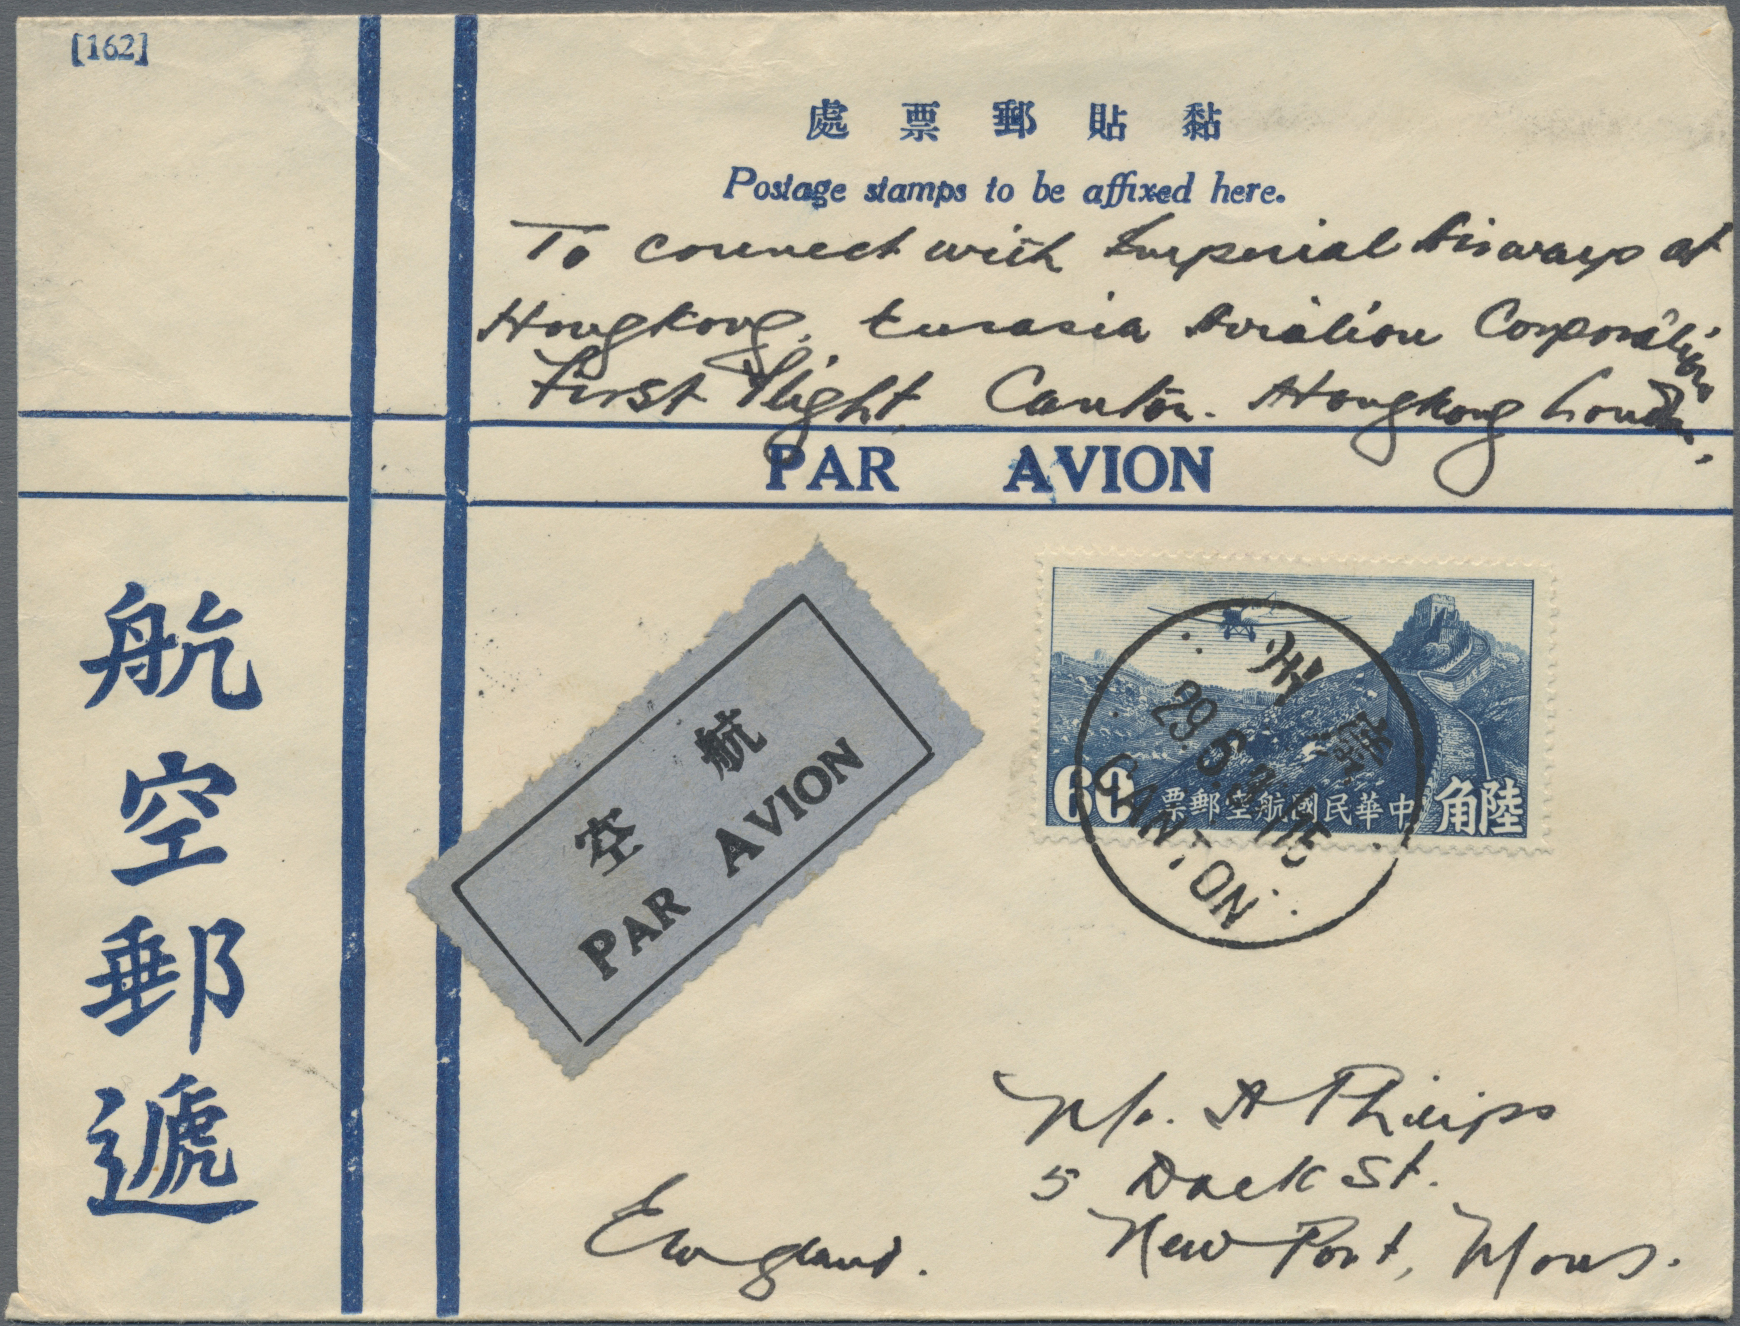 [162]
處票郵貼黏
Postage stamps to be affixed here.
To connect with Imperial Airways at
Hongkong. Eurasia Aviation Corporation
First Flight, Canton. Hongkong London.
PAR AVION
航空郵遞
空航
PAR AVION
60 票郵空航國民華中 角陸
州廣
29. 6.
CANTON.
A Phillips
5 Dock St.
New Port, Mons.
England.